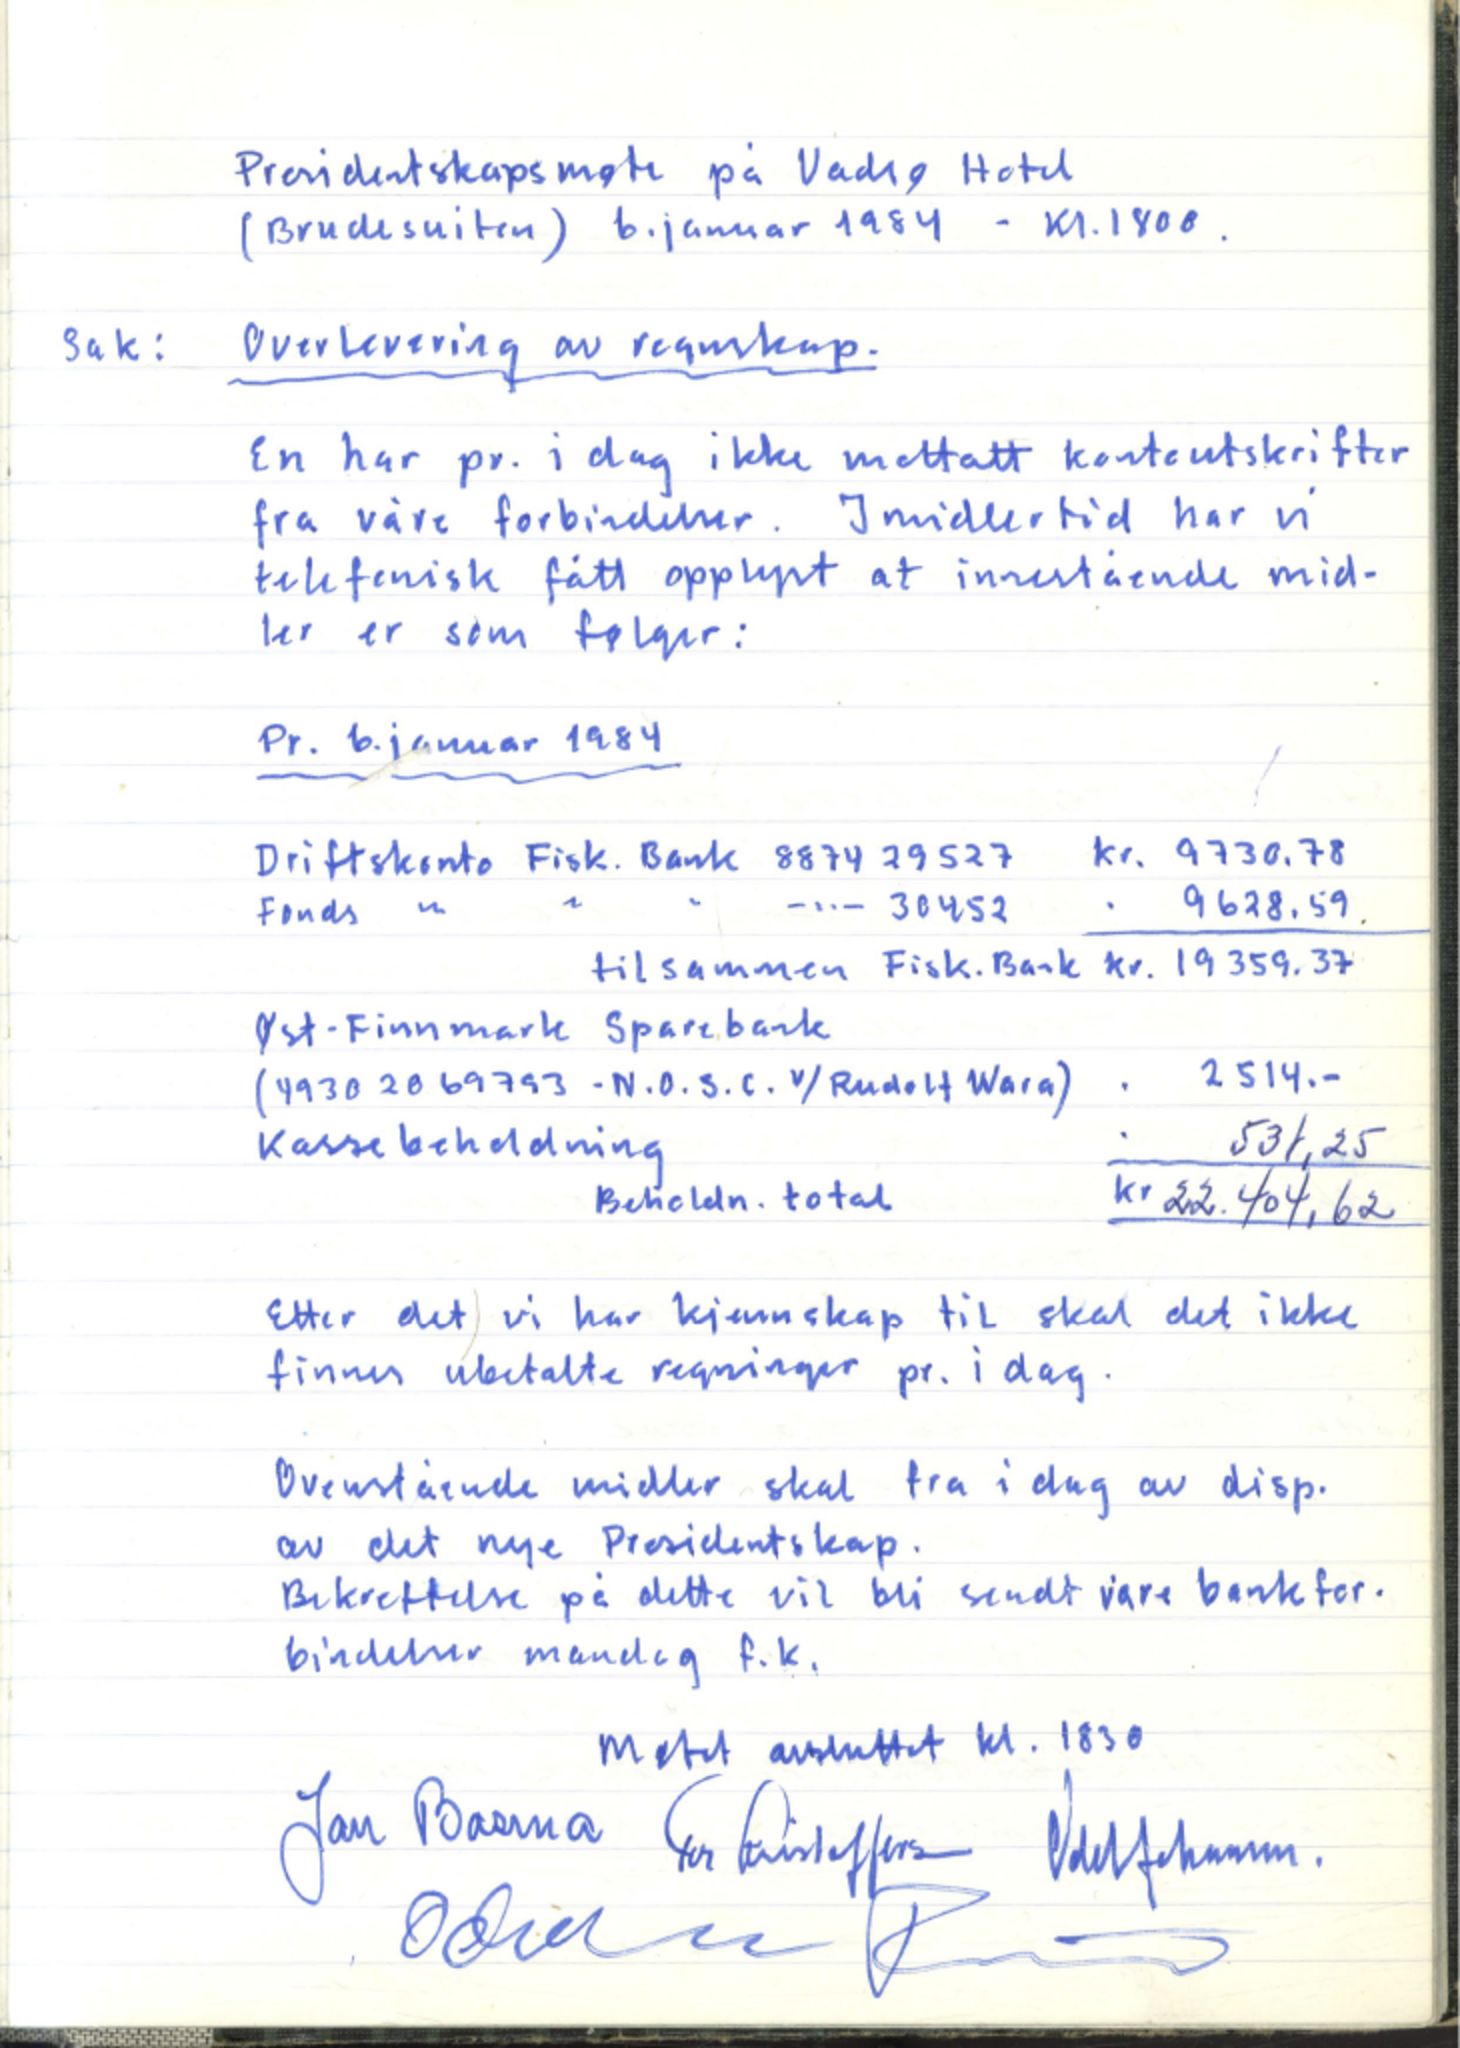 Presidentskapsmøte på Vadsø Hotel
(Brudesuiten) 6. januar 1984 - Kl. 1800.
Sak: Overlevering av regnskap.
En har pr. i dag ikke mottatt kontoutskrifter
fra våre forbindelser. Imidlertid har vi
telefonisk fått opplyst at innestående mid-
ler er som følger:
Pr. 6. januar 1984
Driftskonto Fisk. Bank 8874 29527 kr. 9730.78
Fonds " " " -"- 30452 " 9628.59.
tilsammen Fisk. Bank kr. 19359.37
Øst-Finnmark Sparebank
(4930 20 69793 - N.O.S.C. v/ Rudolf Wara) " 2514.-
Kassebeholdning " 531,25
Beholdn. total kr 22.404,62
Etter det vi har kjennskap til skal det ikke
finnes ubetalte regninger pr. i dag.
Ovenstående midler skal fra i dag av disp.
av det nye Presidentskap.
Bekreftelse på dette vil bli sendt våre bankfor-
bindelser mandag f.k.
Møtet avsluttet kl. 1830
Jan Basma